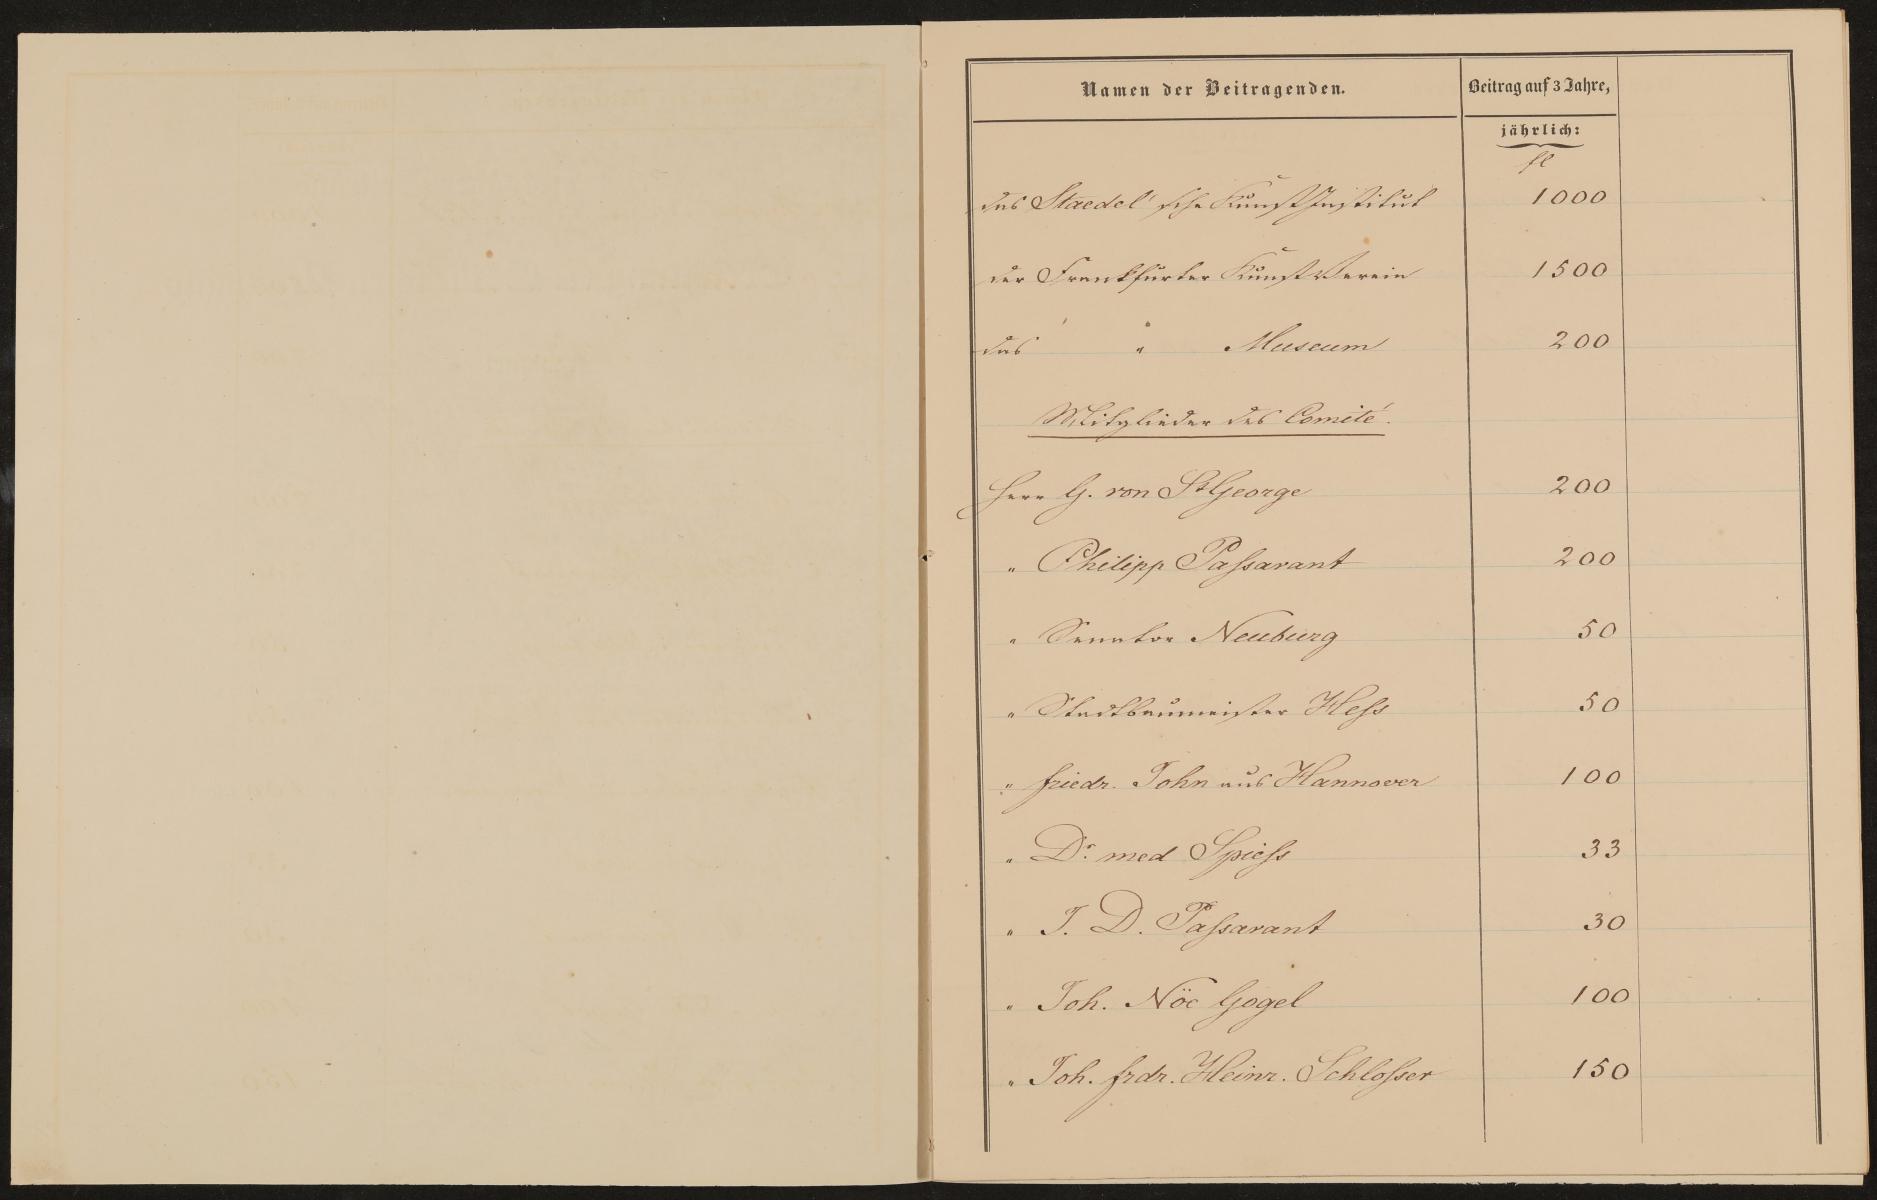 Namen der Beitragenden.
Beitrag auf 3 Jahre,
jährlich:
fl
das Staedel'sche Kunst Institut 1000
der Frankfurter Kunst Verein 1500
das " Museum 200
Mitglieder des Comité.
Herr G. von St George 200
" Philipp Passavant 200
" Senator Neuburg 50
" Stadtbaumeister Hess 50
" Friedr. John aus Hannover 100
" Dr. med Spiess 33
" J. D. Passavant 30
" Joh. Nöe Gogel 100
" Joh. Frdr. Heinr. Schlosser 150